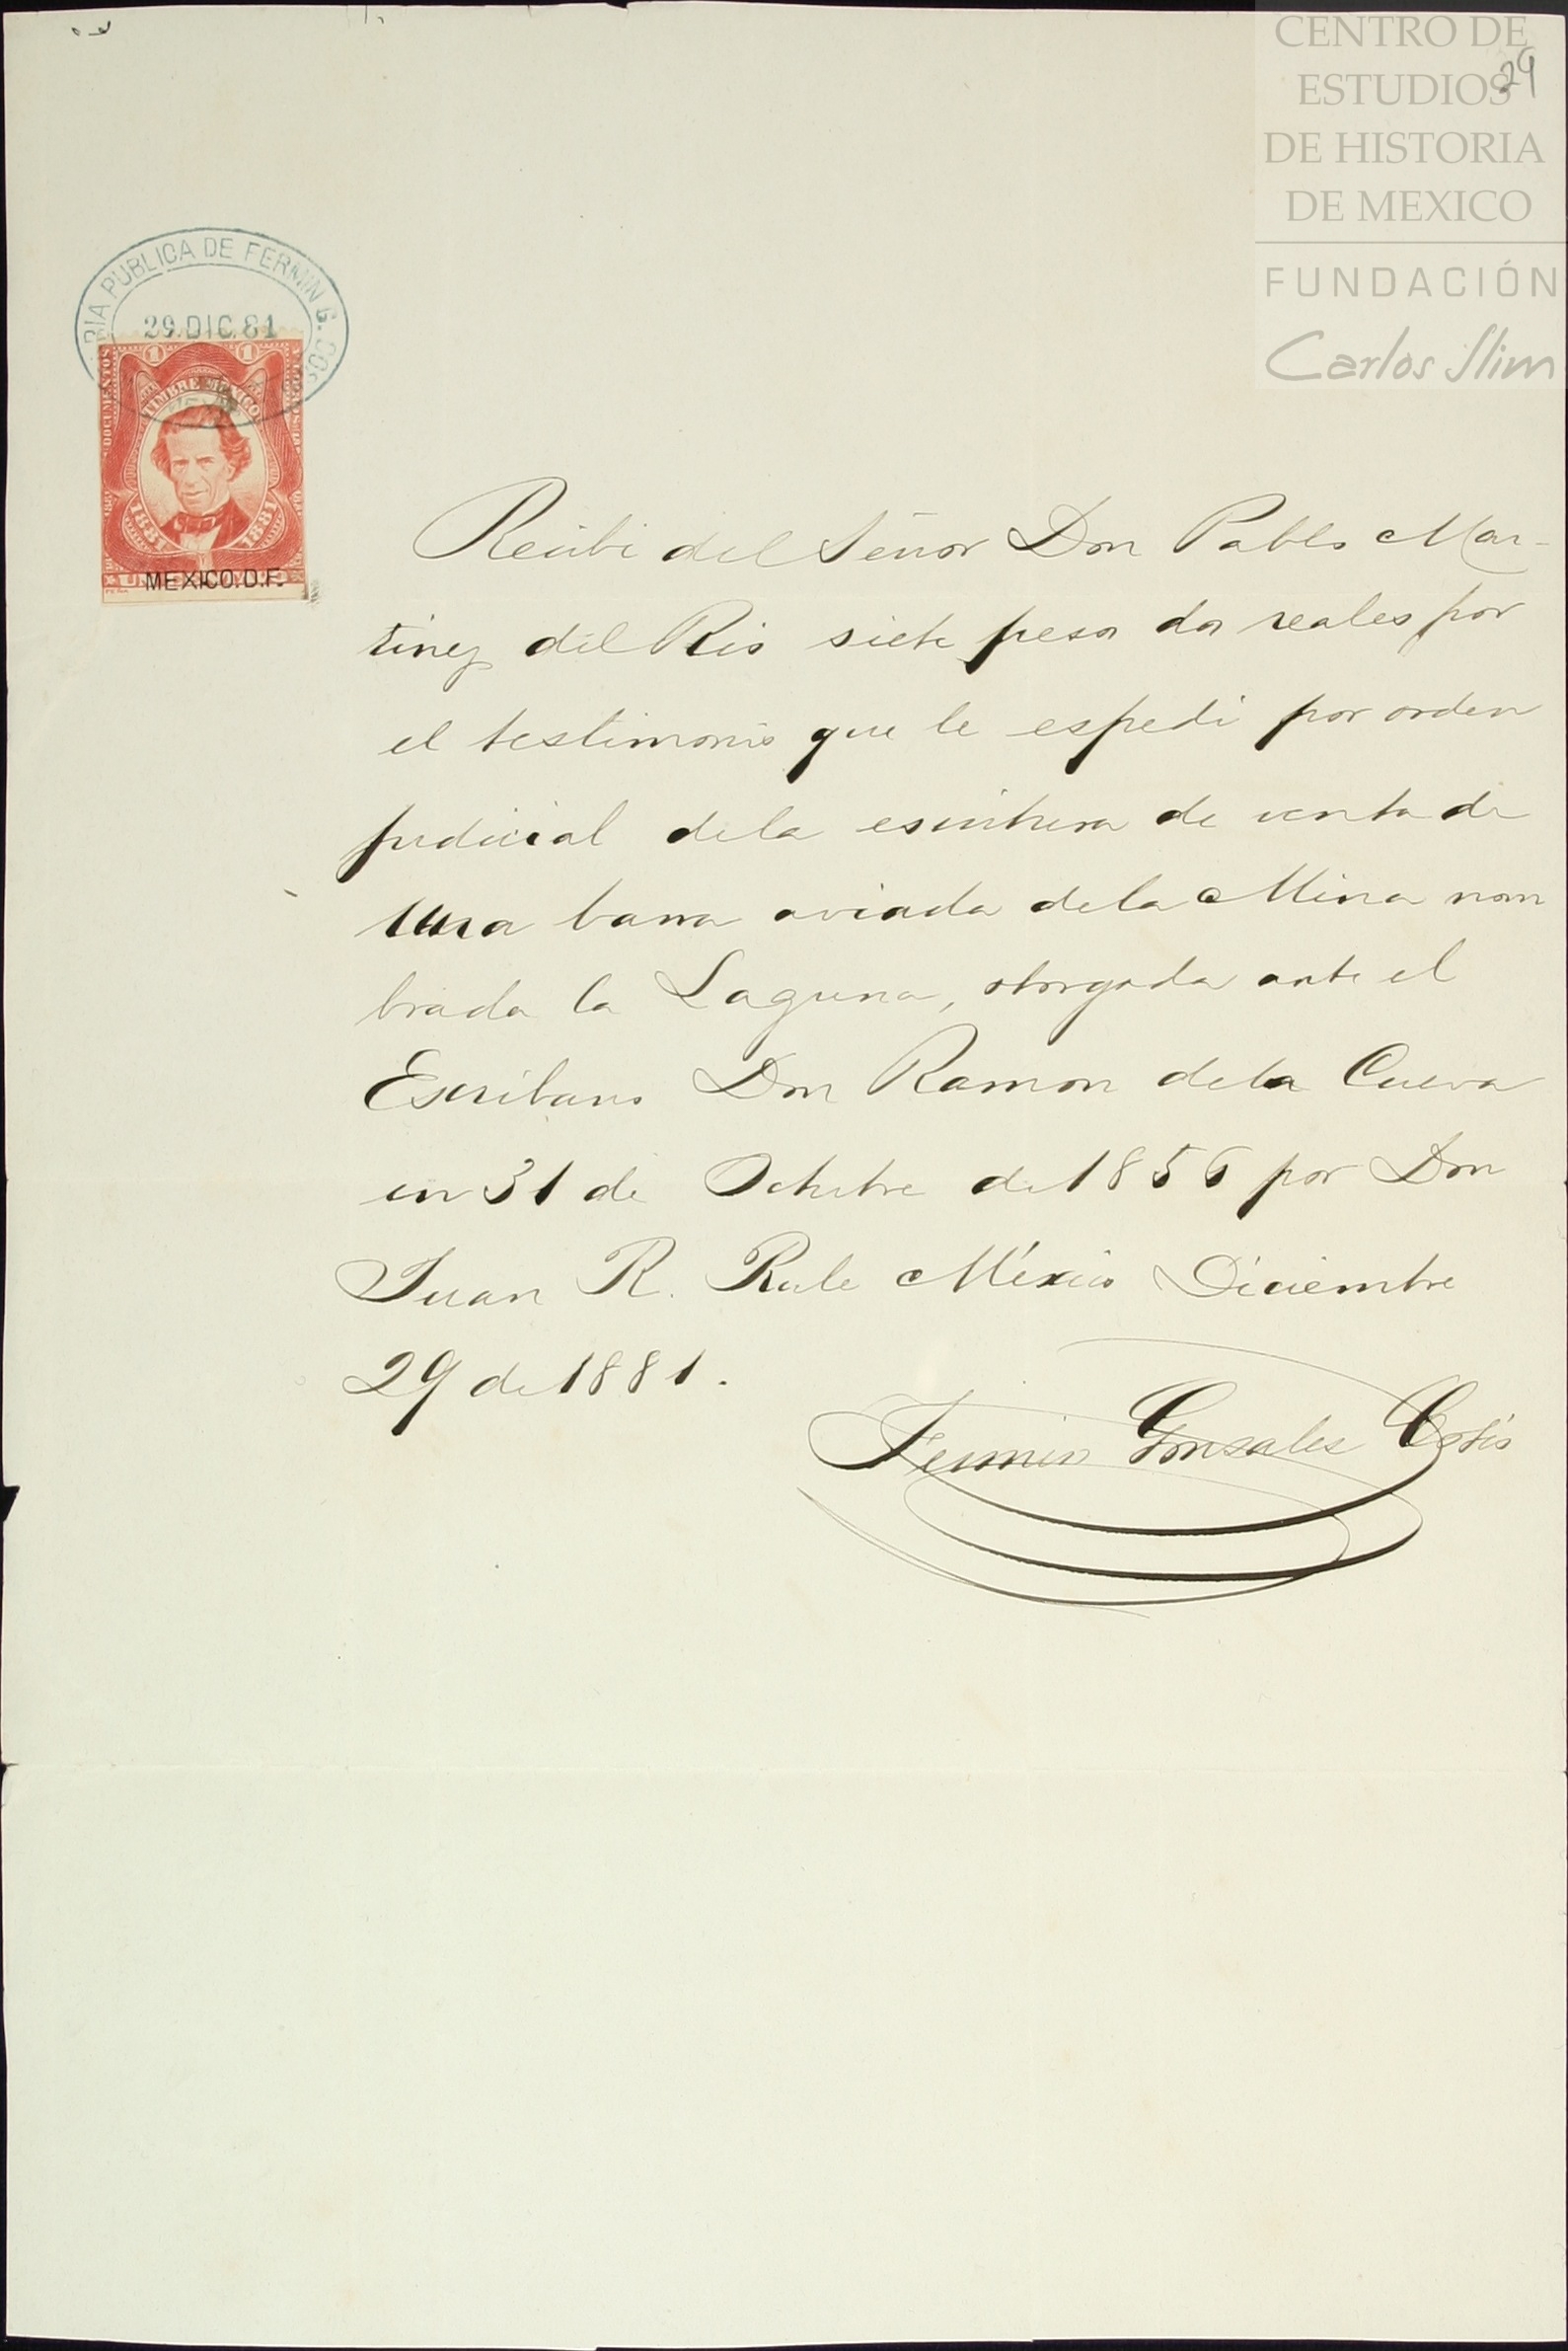 CENTRO DE
ESTUDIOS
DE HISTORIA
DE MEXICO
FUNDACIÓN
Carlos Slim
29
RIA PUBLICA DE FERMIN G. COS
29. DIC. 81
DOCUMENTOS
1 1
TIMBRE MEXICO
1881 1881
UN
MEXICO. D.F.
Recibi del Señor Don Pablo Mar-
tinez del Rio siete pesos dos reales por
el testimonio que le espedi por orden
judicial dela escritura de venta de
una barra aviada dela Mina nom
brada la Laguna, otorgada ante el
Escribano Don Ramon dela Cueva
en 31 de Octubre de 1856 por Don
Juan R. Rule México Diciembre
29 de 1881.
Fermin Gonsales Cosio